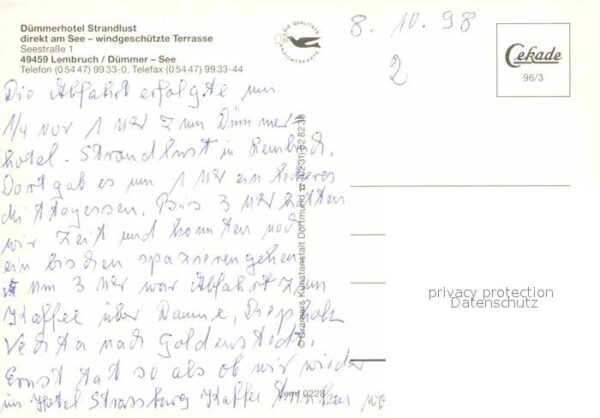 Dümmerhotel Strandlust
direkt am See – windgeschützte Terrasse
Seestraße 1
49459 Lembruch / Dümmer – See
Telefon (05447) 9933-0, Telefax (05447) 9933-44
DIE QUALITÄTS ANSICHTSKARTE
8. 10. 98
2
Cekade
96/3
Die Abfahrt erfolgte um
1/4 vor 1 Uhr zum Dümmer-
hotel - Strandlust in Lembruch.
Dort gab es um 1 Uhr ein leckeres
Mittagessen. Bis 3 Uhr hatten
wir Zeit und konnten noch
ein bischen spazierengehen
um 3 Uhr war Abfahrt zum
Kaffee über Damme, Diepholz
Vechta nach Goldenstedt.
Ernst tat so als ob wir wieder
im Hotel Strassburg Kaffee trinken wo
© Gramers Kunstanstalt Dortmund ☎ 02 31/52 82 38
0228
privacy protection
Datenschutz